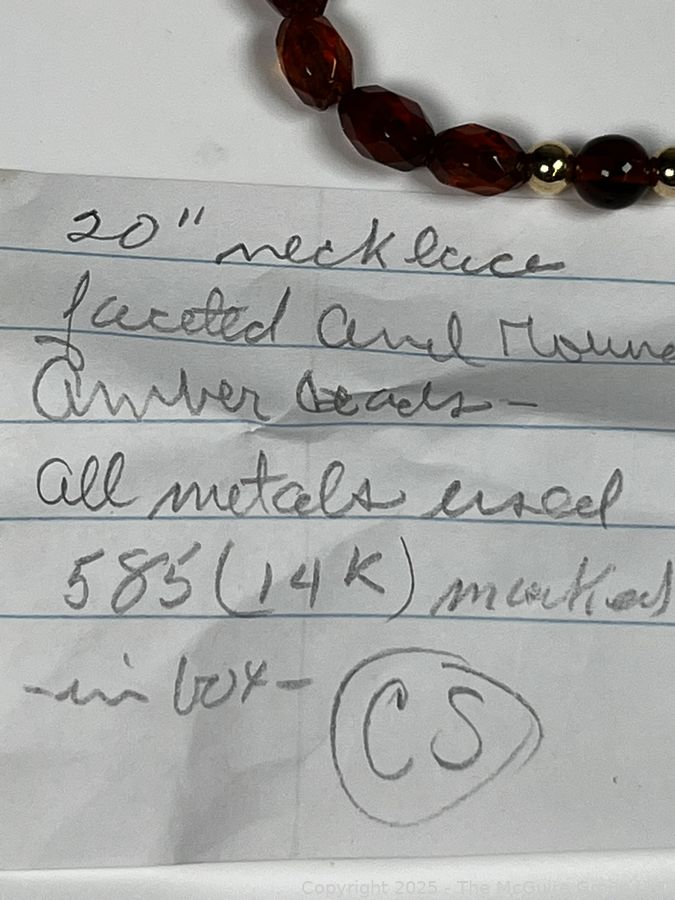 20" necklace
faceted and round
Amber beads-
all metals used
585 (14K) marked
-in box- CS
Copyright 2025 - The McGuire Group LLC